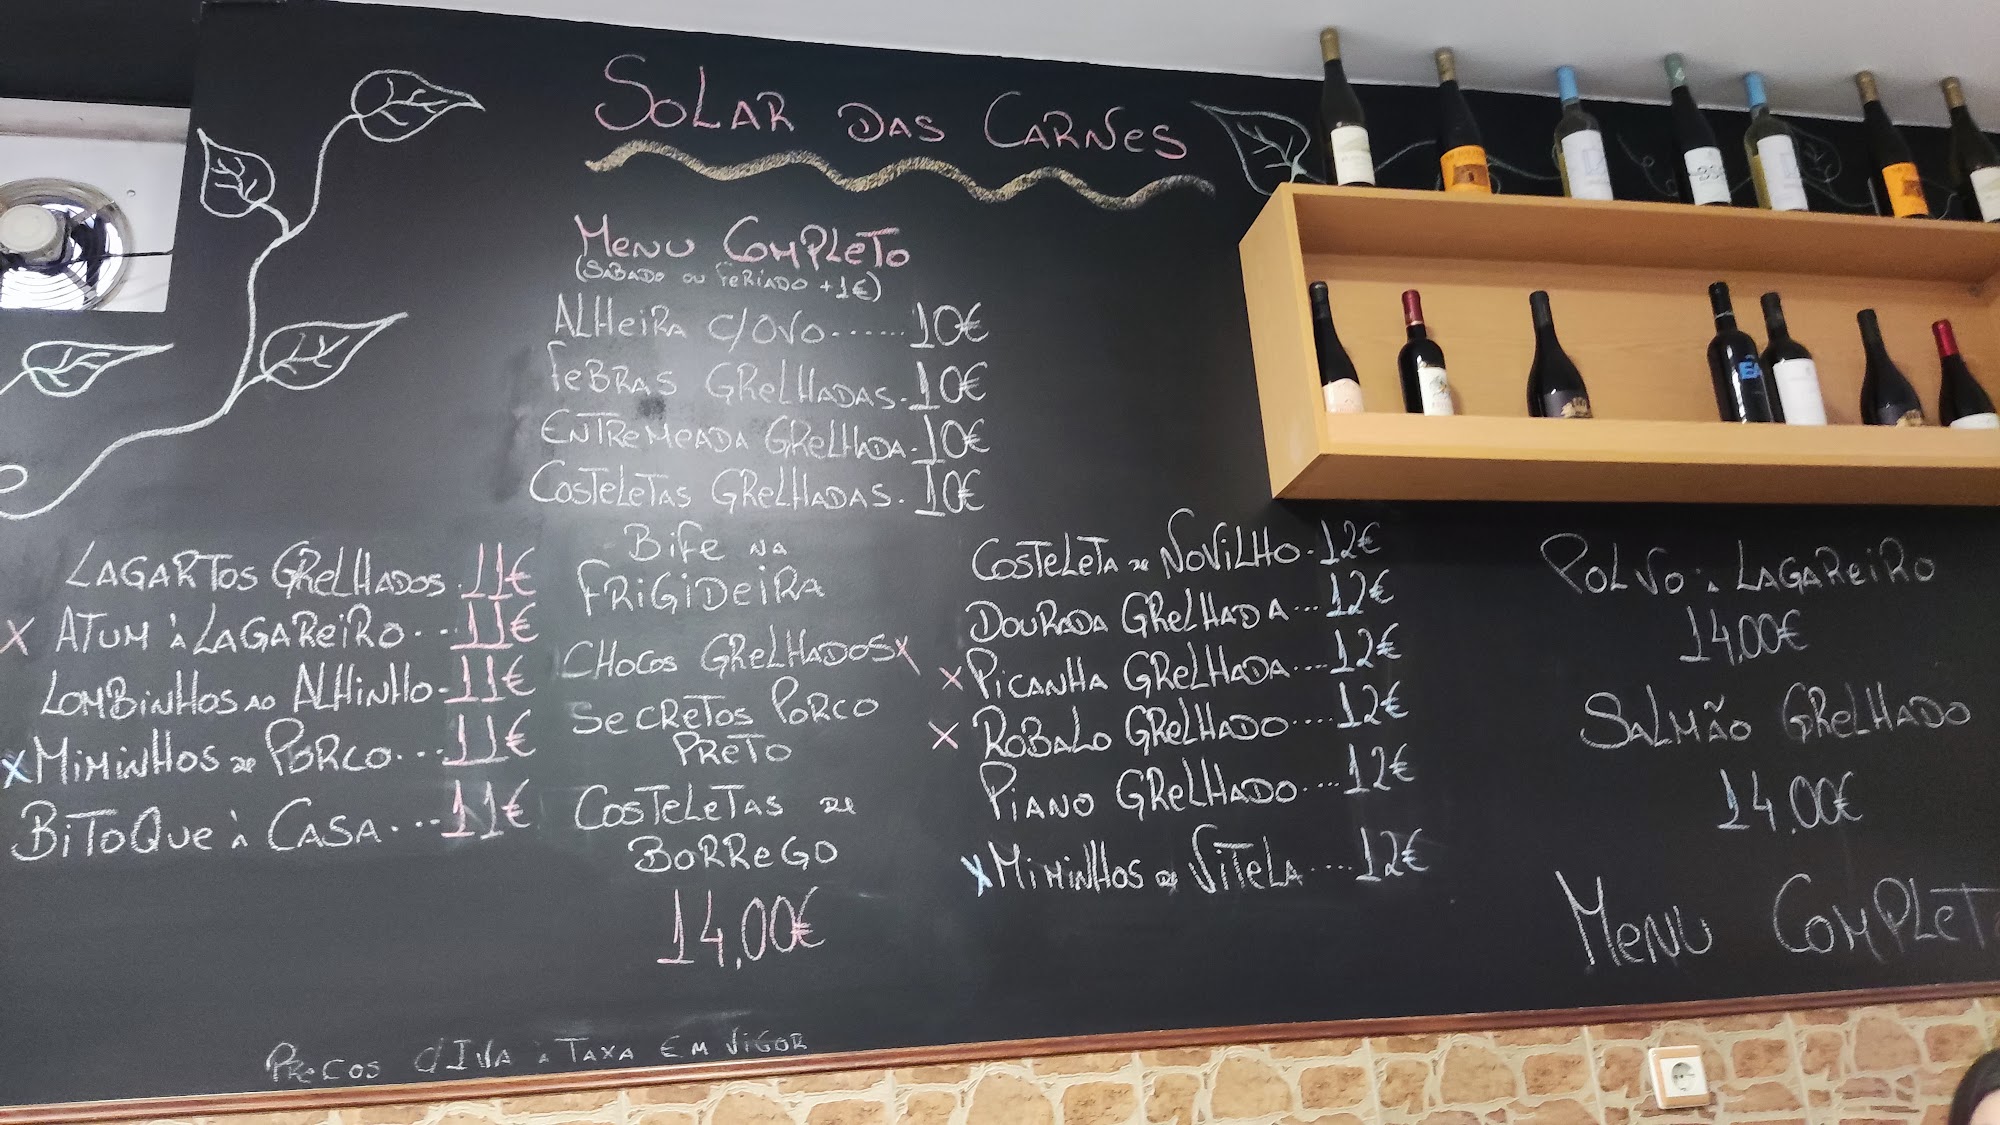 SOLAR DAS CARNES
MENU COMPLETO
(SABADO OU FERIADO +1€)
ALHEIRA C/OVO......10€
FEBRAS GRELHADAS.10€
ENTREMEADA GRELHADA.10€
COSTELETAS GRELHADAS.10€
LAGARTOS GRELHADOS.11€
X ATUM À LAGAREIRO...11€
LOMBINHOS AO ALHINHO-11€
X MIMINHOS DE PORCO...11€
BITOQUE À CASA...11€
BIFE NA
FRIGIDEIRA
CHOCOS GRELHADOS X
SECRETOS PORCO
PRETO
COSTELETAS DE
BORREGO
14,00€
COSTELETA DE NOVILHO.12€
DOURADA GRELHADA...12€
X PICANHA GRELHADA....12€
X ROBALO GRELHADO....12€
PIANO GRELHADO....12€
X MIMINHOS DE VITELA....12€
POLVO À LAGAREIRO
14,00€
SALMÃO GRELHADO
14.00€
MENU COMPLET
PRECOS C/IVA À TAXA EM VIGOR